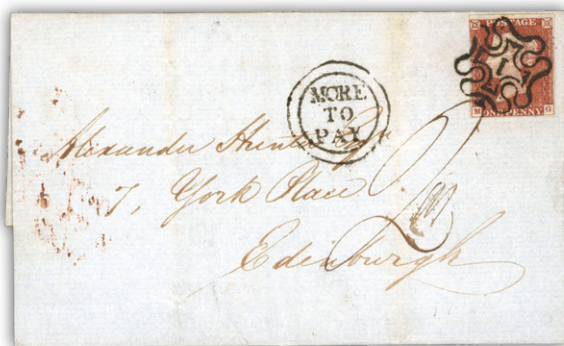 POSTAGE
1
M ONE PENNY G
MORE
TO
PAY
Alexander Hunter Esq
7, York Place
Edinburgh
2